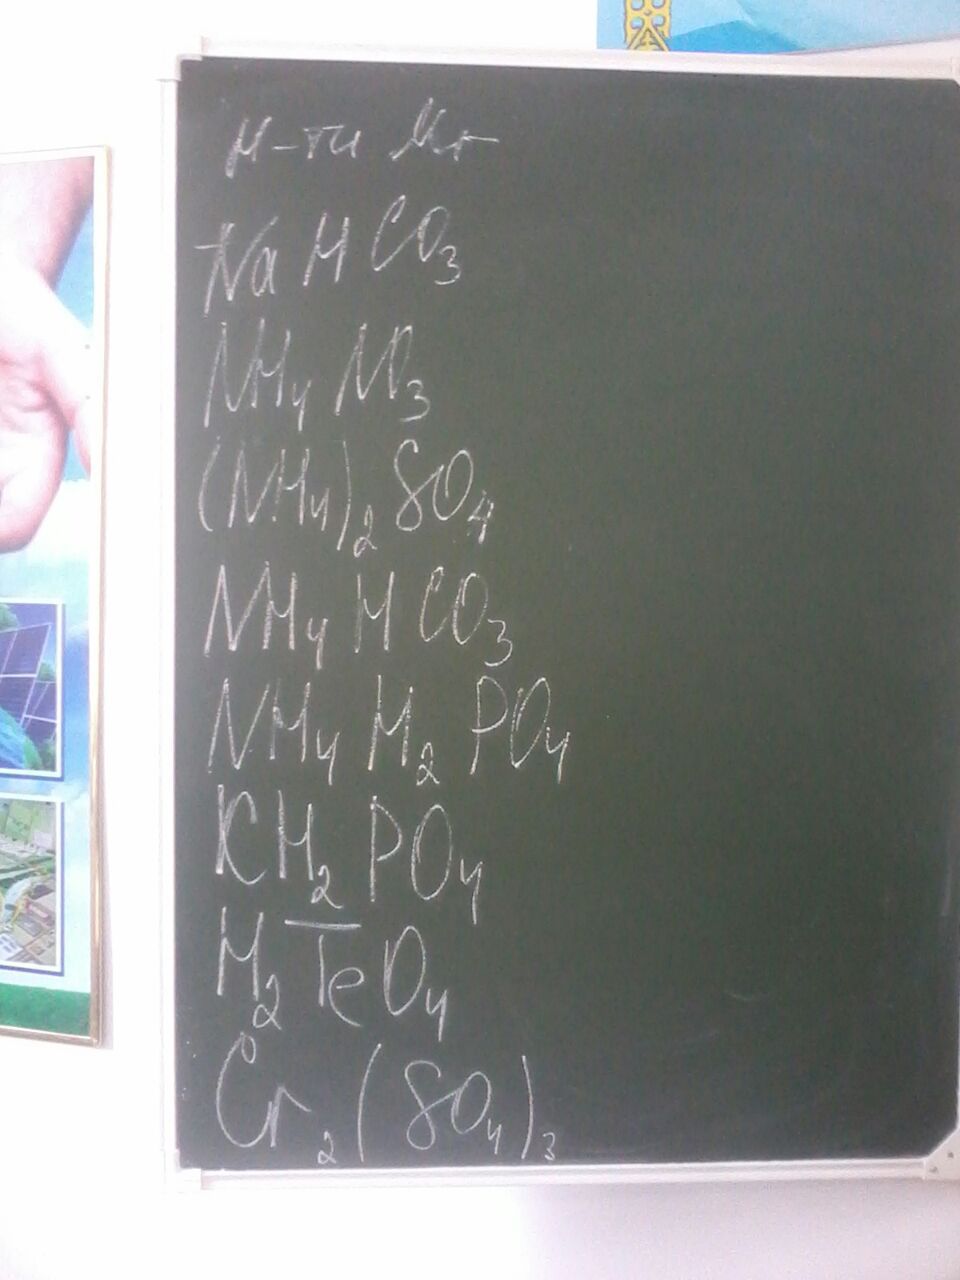 н-ти Mr
NaHCO₃
NH₄NO₃
(NH₄)₂SO₄
NH₄HCO₃
NH₄H₂PO₄
KH₂PO₄
H₂TeO₄
Cr₂(SO₄)₃